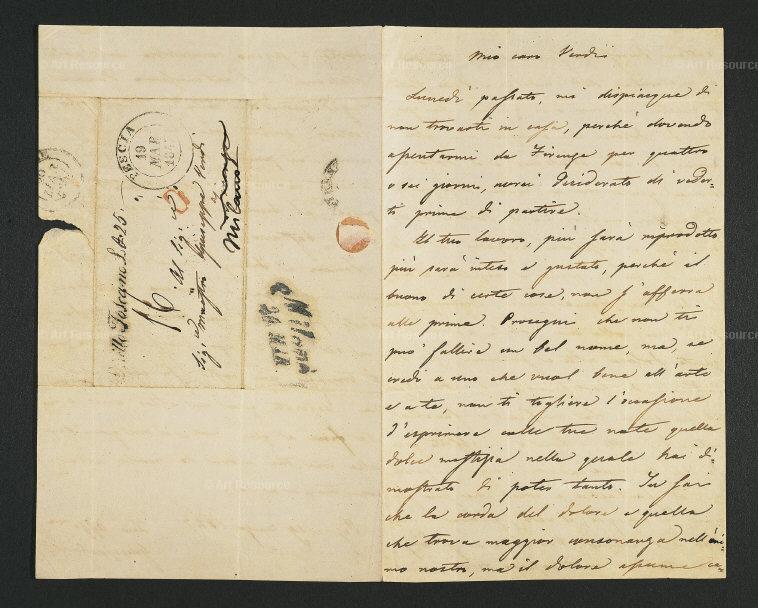 Mio caro Verdi
Lunedì passato, mi dispiacque di
non trovarti in casa, perchè dovendo
assentarmi da Firenze per quattro
o sei giorni, avrei desiderato di veder-
ti prima di partire.
Il tuo lavoro, più sarà riprodotto
più sarà inteso e gustato, perchè il
buono di certe cose, non s'afferra
alla prima. Prosegui che non ti
può fallire un bel nome, ma, se
credi a uno che vuol bene all'arte
e a te, non ti togliere l'occasione
d'esprimere colle tue note quella
dolce mestizia nella quale hai di-
mostrato di poter tanto. Tu sai
che la corda del dolore è quella
che trova maggior consonanza nell'ani-
mo nostro, ma il dolore assume ca-
PESCIA
19
MAR
Al Sig.re
Sig. maestro Giuseppe Verdi
Firenze
Milano
16
© Art Resource